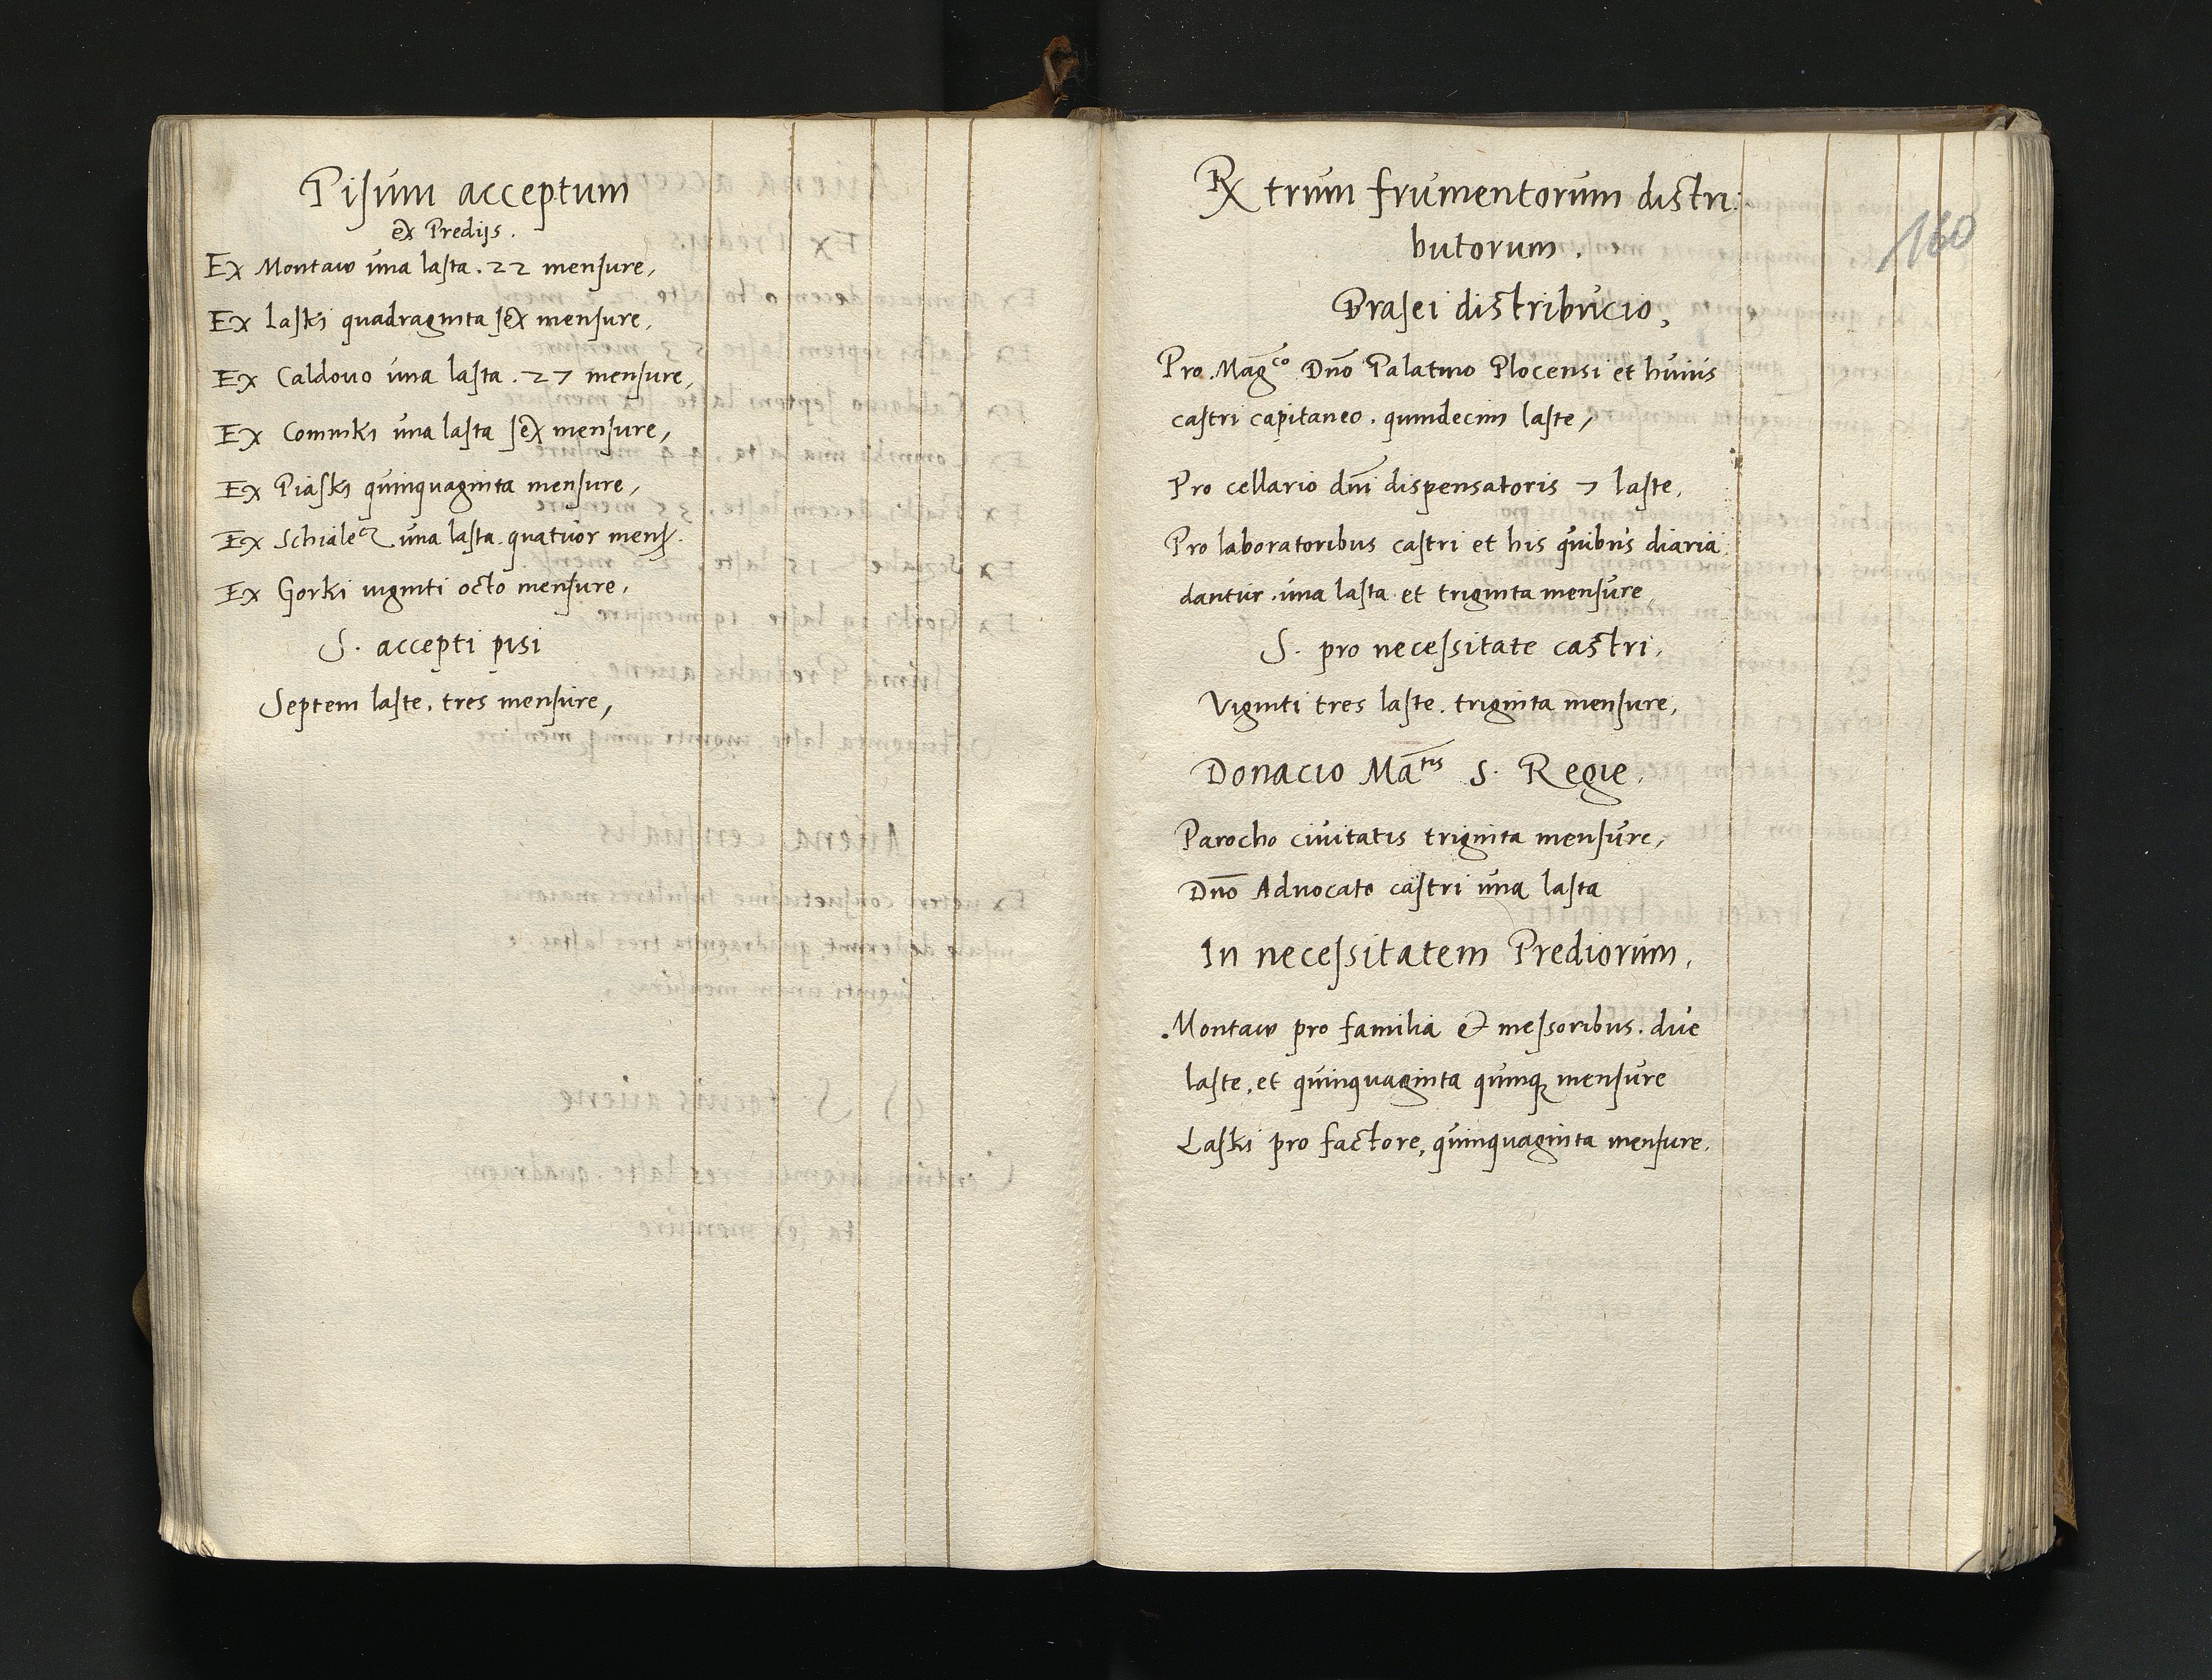 Pisum acceptum
ex Predijs.
Ex Montaw una lasta. 22 mensure,
Ex Laski quadraginta sex mensure,
Ex Caldouo una lasta. 27 mensure,
Ex Comniki una lasta sex mensure,
Ex Piaski quinquaginta mensure,
Ex una lasta. quatuor mens.
Ex Gorki viginti octo mensure,
S. accepti pisi
Septem laste, tres mensure,
160
Rx trum frumentorum distri:
butorum.
Brasei distribucio,
Pro Mag͞co Dn̄o Palatino Plocensi et huius
castri capitaneo. quindecim laste,
Pro cellario dn̄i dispensatoris 7 laste,
Pro laboratoribus castri et his quibus diaria
dantur. una lasta et triginta mensure,
S. pro necessitate castri,
Viginti tres laste. triginta mensure,
Donacio Ma͞tis S. Regie,
Parocho ciuitatis triginta mensure,
Dn̄o Aduocato castri una lasta
In necessitatem Prediorum,
Montaw pro familia et messoribus. due
laste, et quinquaginta quinq mensure
Laski pro factore, quinquaginta mensure.